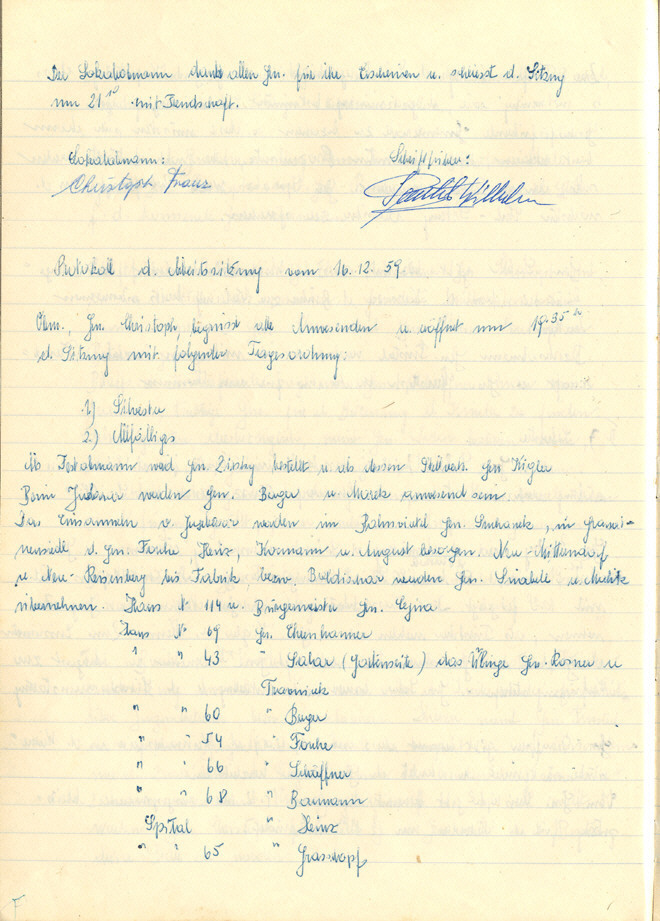 Der Lokalobmann dankt allen Gen. für ihr Erscheinen u. schliesst d. Sitzung
um 21¹⁰ mit Freundschaft.
Lokalobmann: Schriftführer:
Christoph Franz Wilhelm
Protokoll d. Arbeitssitzung vom 16. 12. 59
Obm., Gen. Christoph, begrüsst alle Anwesenden u. eröffnet um 19.35 h
d. Sitzung mit folgender Tagesordnung:
1.) Silvester
2.) Allfälliges
Als Festobmann wird Gen. Zirsky bestellt u. als dessen Stellvertr. Gen. Kigler
Beim Juxbasar werden Gen. Berger u. Marek anwesend sein
Das Einsammeln v. Juxbasar werden im Bahnviertel Gen. Smetanek, in Gramat-
neusiedl d. Gen. Fronhe, Heinz, Kormann u. August besorgen. Neu-Mitterndorf
u. Neu-Reisenberg bis Fabrik, bezw. Buldischar werden Gen. u. Medlik
übernehmen. Haus N° 114 u. Bürgermeister Gen. Cezina
Haus N° 69 Gen. Ehrenhammer
" " 43 " Salar (Gartenseite) das Übrige Gen. Rosner u.
Travnicek
" " 60 " Berger
" " 54 " Fronhe
" " 66 " Schäffner
" " 68 " Baumann
Spital " Heinz
" " 65 " Grasskopf